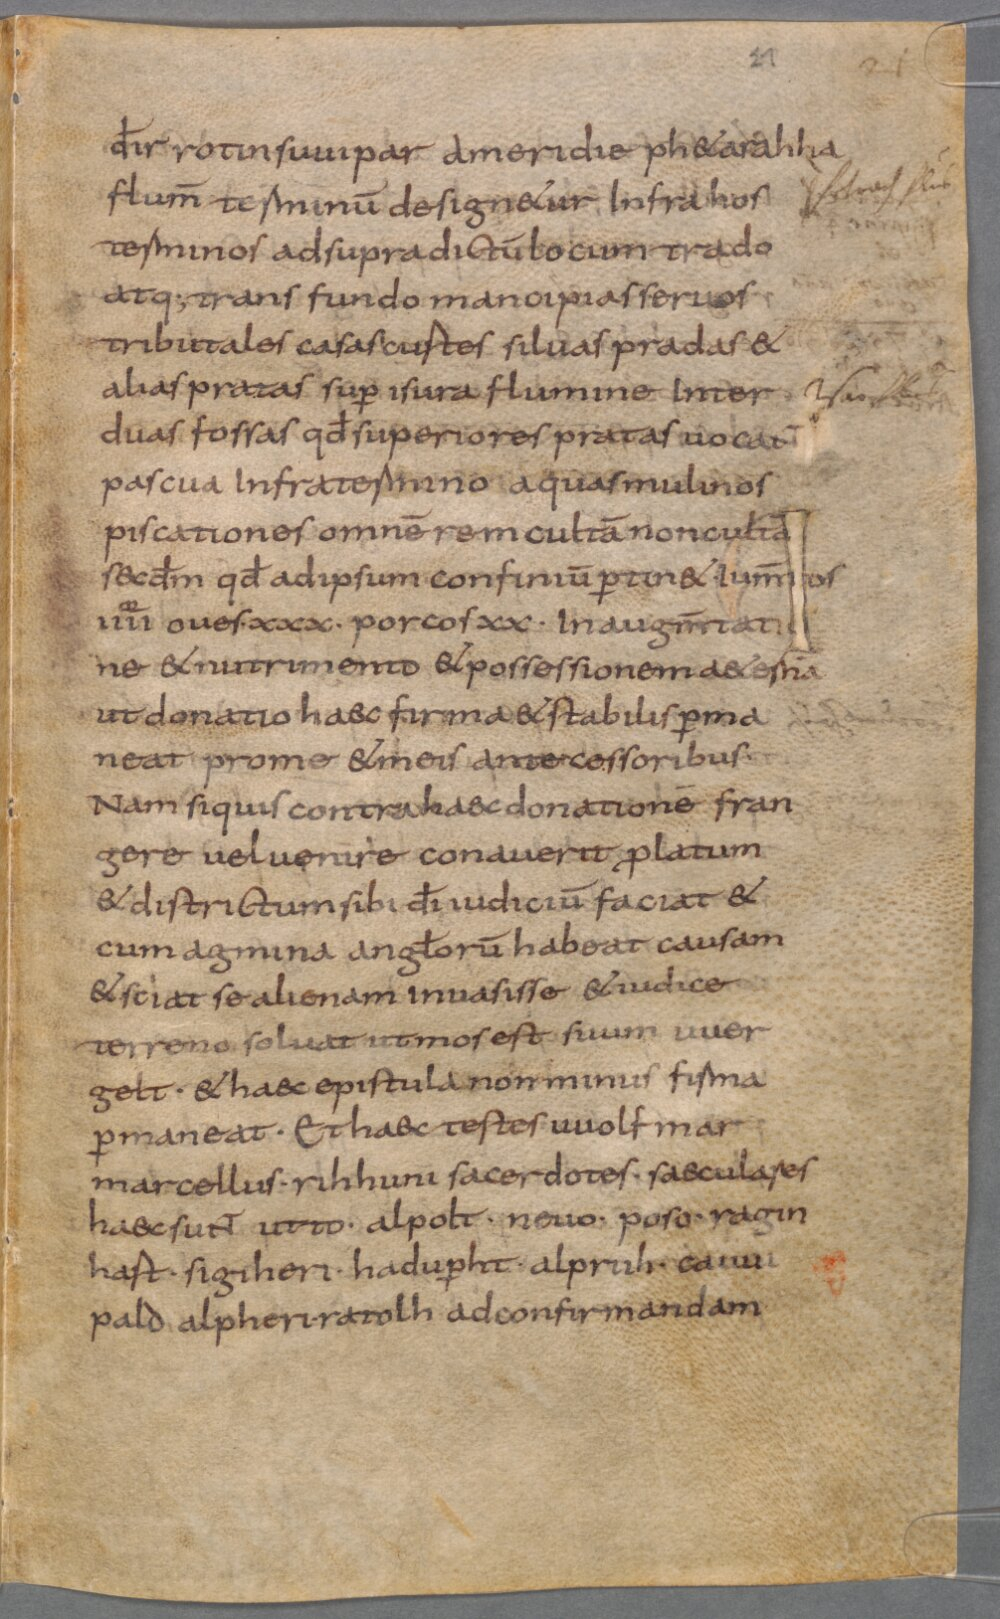 21
dir rotinsuuipar Ameridie ph&arahha
flum̄ terminū design&ur Infra hos
terminos adsupradictū locum trado
atq; trans fundo mancipias seruos
tributales casas custes siluas pradas &
alias pratas sup̱ isura flumine Inter
duas fossas qđ superiores pratas uocanT
pascua Infra termino aquas mulinos
piscationes omnē rem cultā non cultā
s&cđm qđ adipsum confiniū p̱tin& Ium̄tos
iiii oues·xxx· porcos xx· Inaugm̄tati
ne & nutrimento & possessionem a&ernā
ut donatio haec firma & stabilis p̱ma
neat pro me & meis antecessoribus·
Nam siquis contra haec donationē fran
gere uel uenire conauerit p̱latum
& districtum sibi dī iudiciū faciat &
cum agmina angłorū habeat causam
& sciat se alienam inuasisse & iudice
terreno soluat ut mos est suum uuer
gelt· & haec epistula non minus firma
p̱maneat· Et haec testes uuolf mar
marcellus· rihhuni sacerdotes· saeculares
haec sunT utto· alpolt· neuo· poso· ragin
hast· sigiheri· hadup̱ht· alprih· cauui
pald alpheri· ratolh ad confirmandam